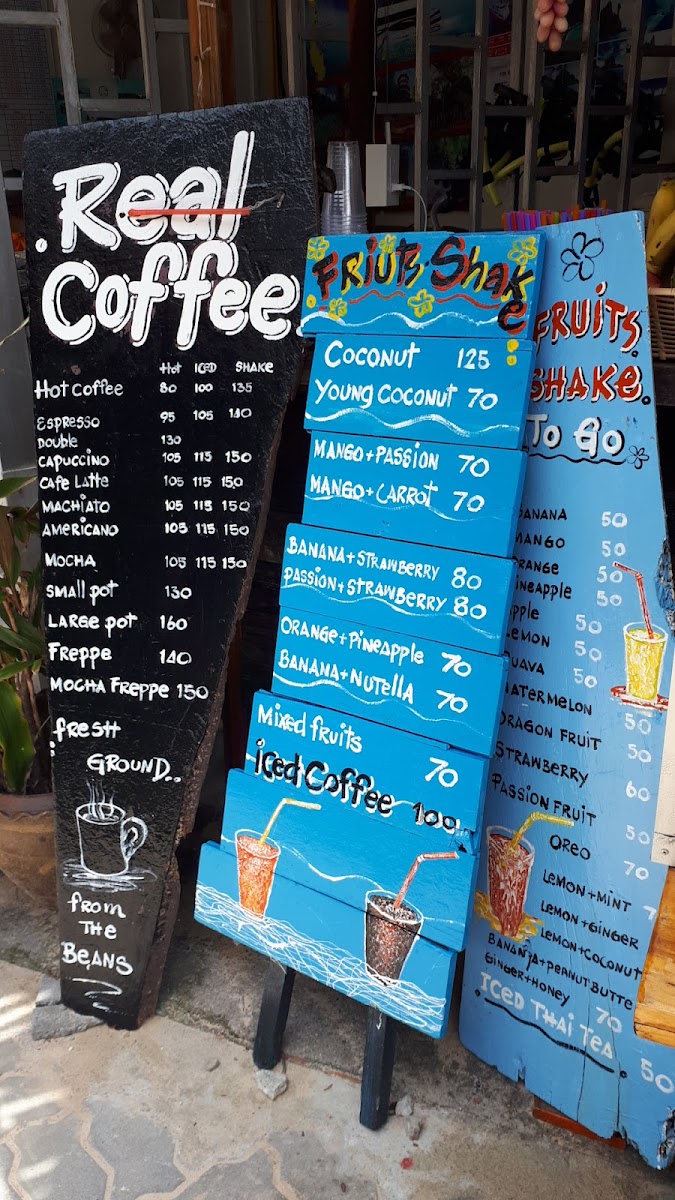 Real
Coffee
Hot ICED SHAKE
Hot Coffee 80 100 135
ESPRESSO 95 105 140
DOUBLE 130
CAPUCCINO 105 115 150
CAFE LATTE 105 115 150
MACHIATO 105 115 150
AMERICANO 105 115 150
MOCHA 105 115 150
SMALL POT 130
LARGE POT 160
FREPPE 140
MOCHA FREPPE 150
FRESH
GROUND..
FROM
THE
BEANS
FRIUTS Shake
COCONUT 125
YOUNG COCONUT 70
MANGO+PASSION 70
MANGO+CARROT 70
BANANA+STRAWBERRY 80
PASSION+STRAWBERRY 80
ORANGE+PINEAPPLE 70
BANANA+NUTELLA 70
Mixed fruits 70
iced Coffee 100
FRUITS
SHAKE
TO GO
BANANA 50
MANGO 50
ORANGE 50
Pineapple 50
Apple 50
LEMON 50
GUAVA 50
WATERMELON 50
DRAGON FRUIT 50
STRAWBERRY 60
PASSION FRUIT 50
OREO 70
LEMON+MINT
LEMON+GINGER
LEMON+COCONUT
BANANA+PEANUT BUTTE
GINGER+HONEY 70
ICED THAI TEA 50